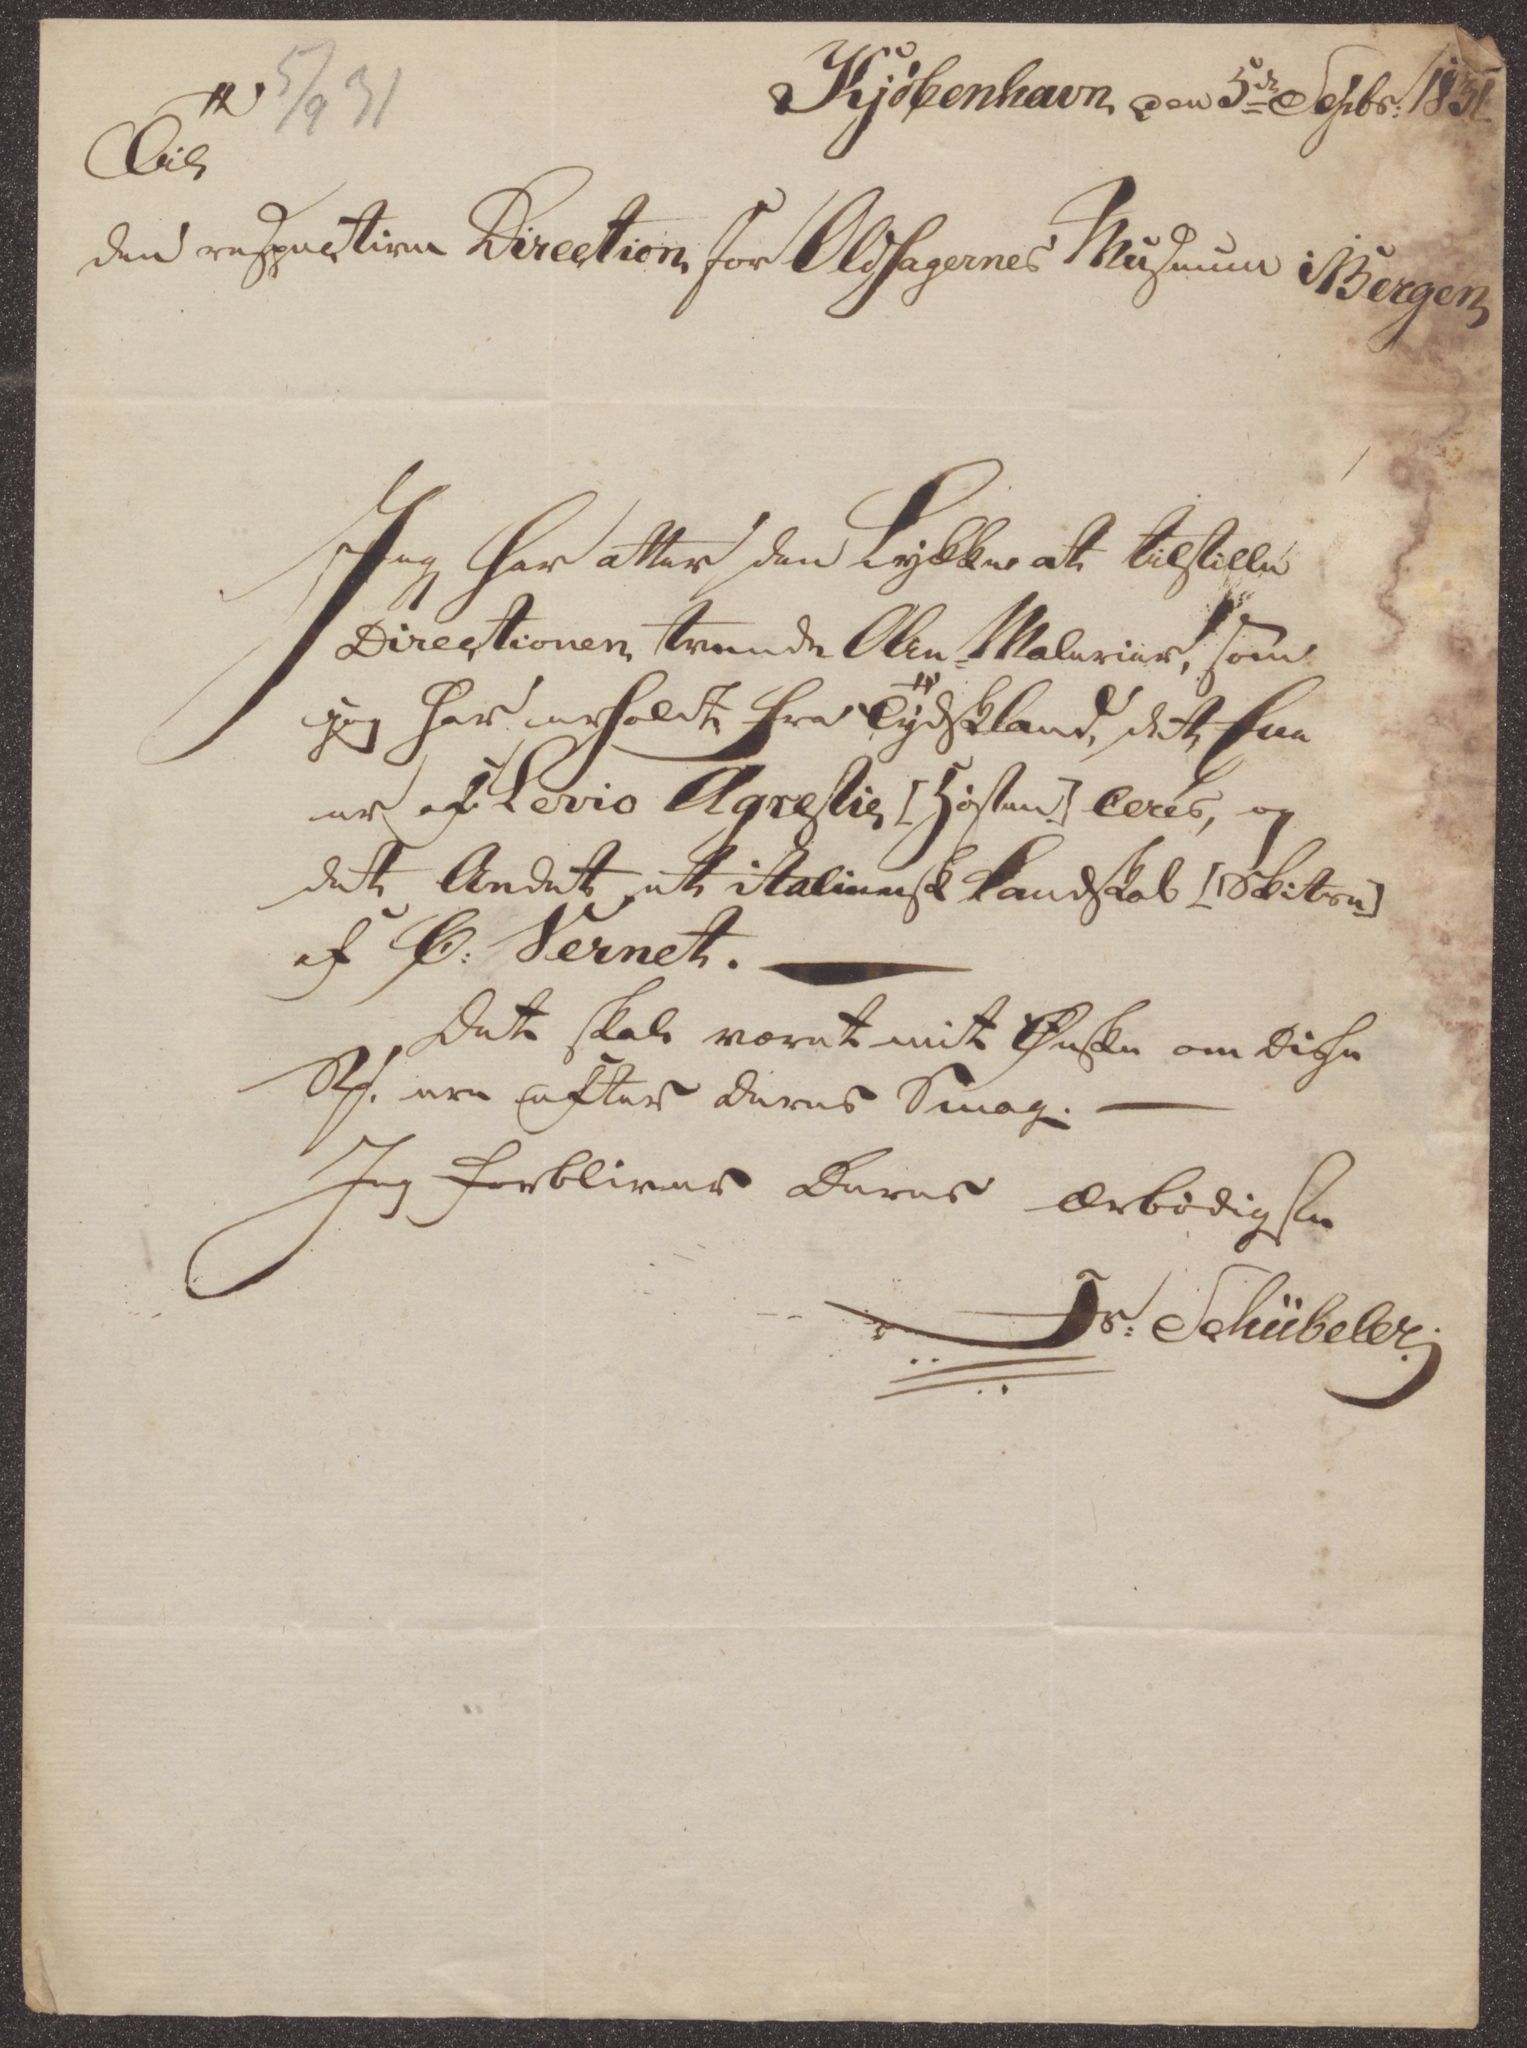 5/9 31
Kjöbenhavn den 5te Septbr: 1831
Til
den respective Direction for Oldsagernes Museum i Bergen
Jeg har atter den Lykke at tilstille
Directionen tvende Olie-Malerier, som
jeg har erholdt fra Tydskland, det Ene
er af Levio Agrestie [Hösten] Ceres, og
det Andet et italiensk Landskab [Skitse]
af C: Vernet.
Det skal været mit Ønske om disse
St. ere efter deres Smag.
Jeg forbliver Deres ærbödigste
Fr: Schübeler.